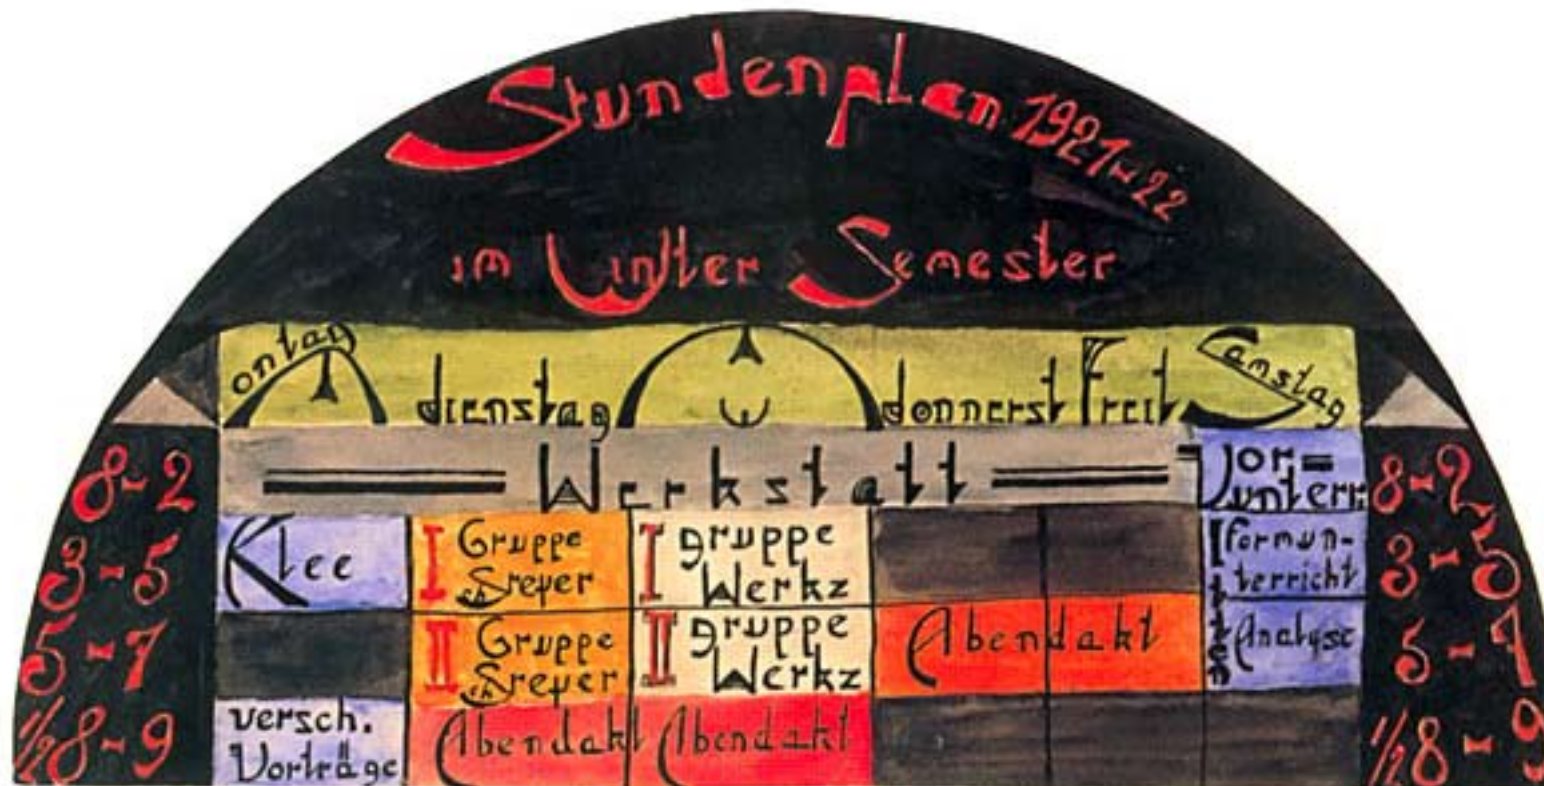 Stundenplan 1921-22
im Winter Semester
Montag dienstag M W donnerst Freit Samstag
8-2 Werkstatt Vor=unterr. 8-2
3-5 Klee I Gruppe Schreyer I gruppe Werkz Itten formun-terricht 3-5
5-7 II Gruppe Schreyer II gruppe Werkz Abendakt Analyse 5-7
1/2 8-9 versch. Vorträge Abendakt Abendakt 1/2 8-9